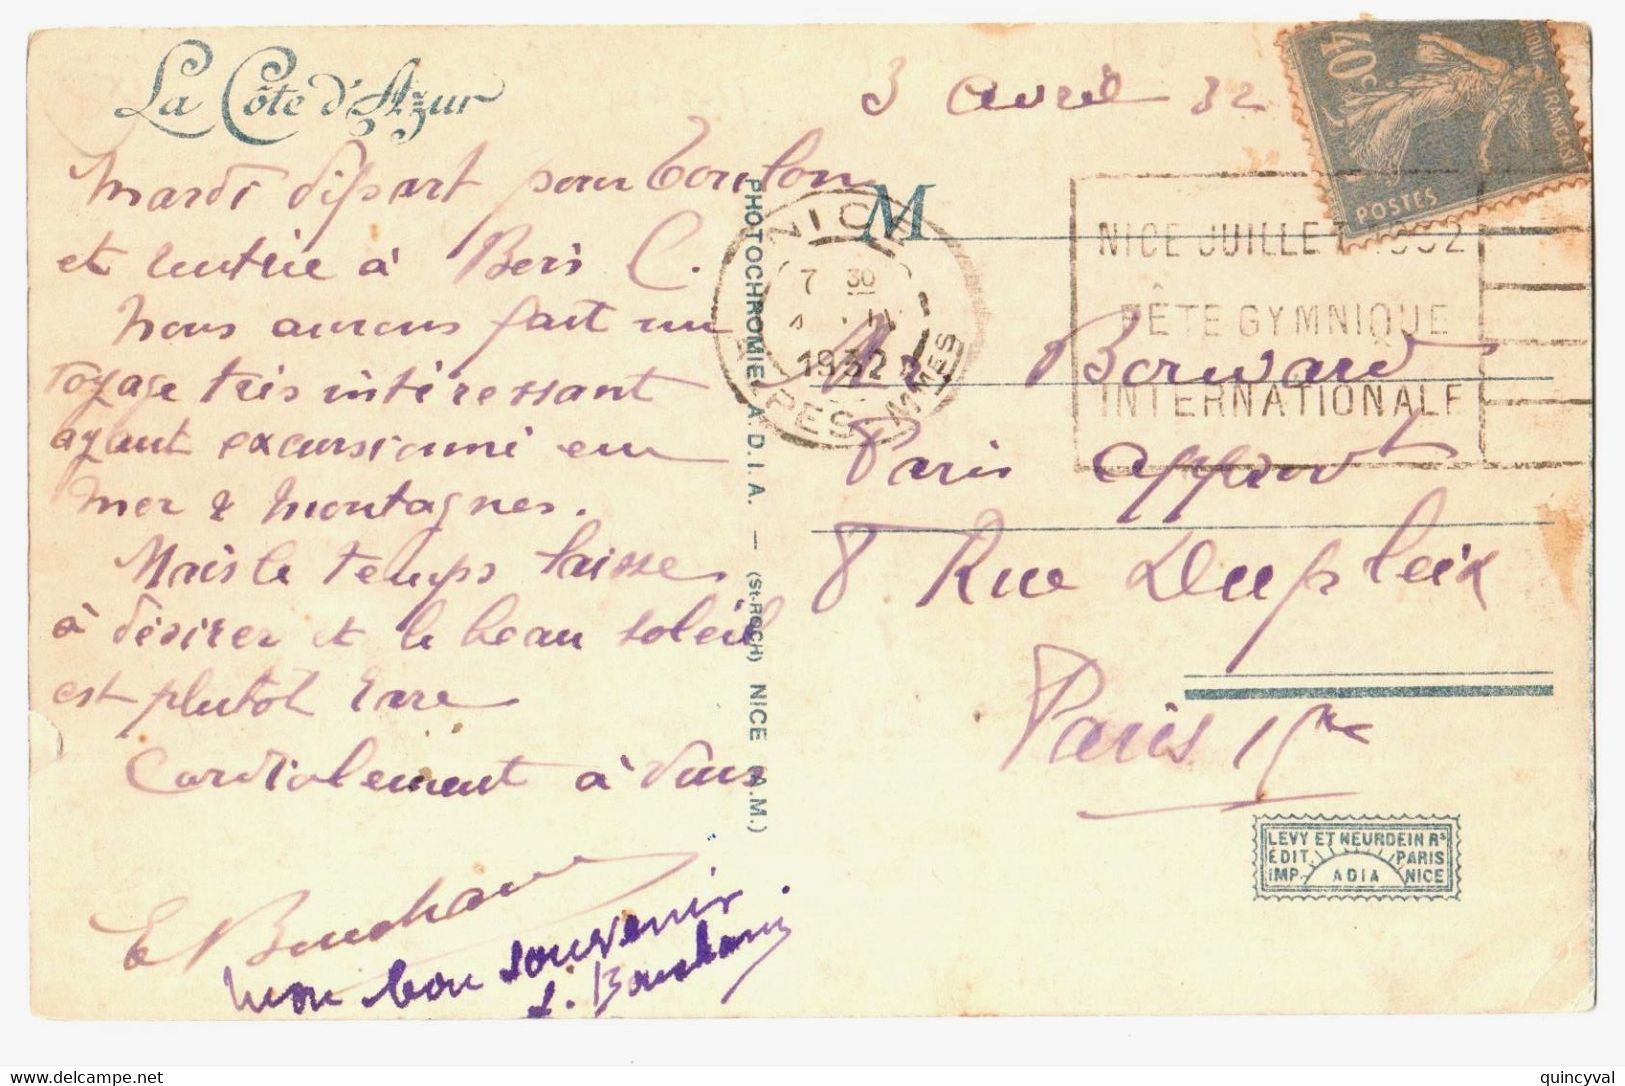 La Côte d'Azur
3 avril 32
Mardi départ pour Toulon
et rentrée à Bois C.
Nous aurons fait un
voyage très intéressant
ayant excursionné en
mer & montagnes.
Mais le temps laisse
à désirer et le beau soleil
est plutôt rare
Cordialement à vous
E Bouchard
mon bon souvenir.
PHOTOCHROMIE A.D.I.A. — (St-ROCH) NICE (A.M.)
40c
POSTES
M
NICE
7 30
1932
ALPES MMES
NICE JUILLET 1932
FÊTE GYMNIQUE
INTERNATIONALE
Mr
Paris
8 Rue Dupleix
Paris 15me
LEVY ET NEURDEIN Rs
ÉDIT. PARIS
IMP. ADIA NICE
www.delcampe.net
quincyval